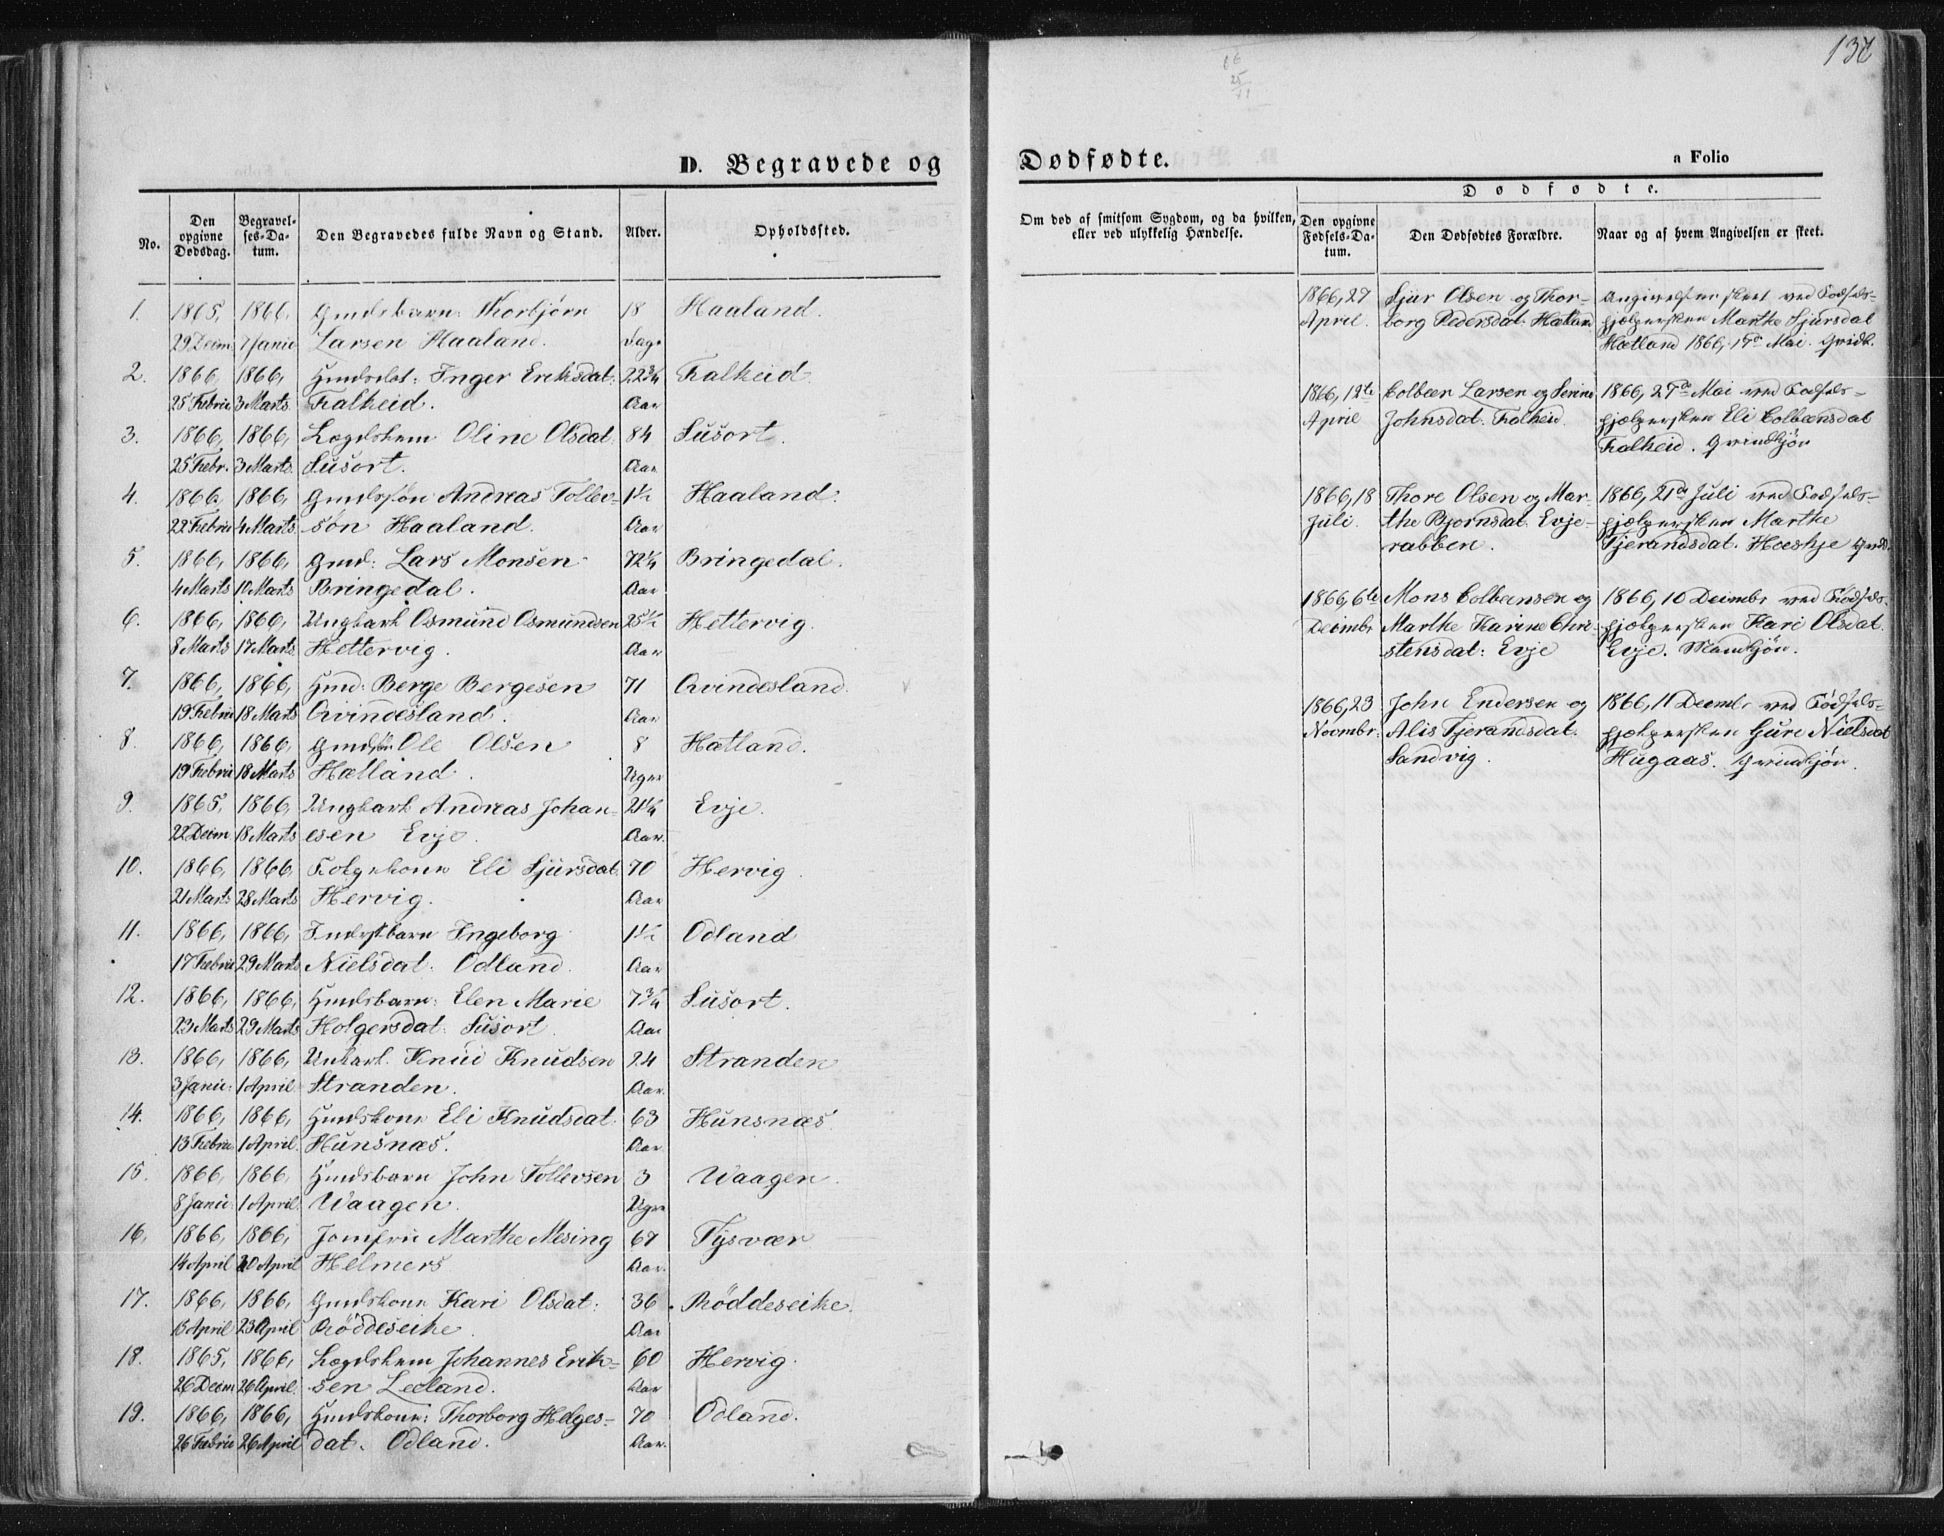 137
D. Begravede og Dødfødte.
a Folio
No.
Den opgivne Dødsdag.
Begravelses-Datum.
Den Begravedes fulde Navn og Stand.
Alder.
Opholdssted.
Om død af smitsom Sygdom, og da hvilken, eller ved ulykkelig Hændelse.
Dødfødte.
Den opgivne Fødsels-Datum.
Den Dødfødtes Forældre.
Naar og af hvem Angivelsen er skeet.
1. 1865, 1866, Gmdsbarn: Thorbjørn 18 Haaland.
29 Decem 7 Janu Larsen Haaland. Dage
2. 1866, 1866, Gmdsdat: Inger Eriksdat: 22 3/4 Falheid.
25 Febru 3 Marts Falheid. Aar
3. 1866, 1866, Lægdslem Oline Olsdat 84 Susort.
25 Febr. 3 Marts Susort. Aar
4. 1866, 1866, Gmdssøn Andreas Tollev- 1 1/2 Haaland.
22 Febru 4 Marts søn Haaland. Aar
5. 1866, 1866, Gmd: Lars Monsen 72 1/4 Bringedal.
4 Marts 10 Marts Bringedal. Aar
6. 1866, 1866, Ungkarl Osmund Osmundsen 25 1/2 Hettervig.
8 Marts 17 Marts Hettervig. Aar
7. 1866, 1866, Hmd: Berge Bergesen 71 Qvindesland.
19 Febru 18 Marts Qvindesland. Aar
8. 1866, 1866, Gmdssøn Ole Olsen 8 Hætland.
19 Febru 18 Marts Hætland. Uger
9. 1865, 1866, Ungkarl Andreas Johan- 21 1/4 Evje.
22 Decem 18 Marts esen Evje. Aar.
10. 1866, 1866, Folgekone Eli Sjursdat 70 Hervig.
21 Marts 28 Marts Hervig. Aar
11. 1866, 1866, Inderstbarn Ingeborg 1 1/2 Odland
17 Febru 29 Marts Nielsdat. Odland. Aar
12. 1866, 1866, Hmdsbarn: Elen Marie 7 3/4 Susort.
23 Marts 29 Marts Holgersdat. Susort Aar
13. 1866, 1866, Unkarl. Knud Knudsen 24 Stranden
3 Janu: 1 April Stranden. Aar.
14. 1866, 1866, Hmdskone Eli Knudsdat. 63 Hunsnæs.
13 Febru 1 April. Hunsnæs. Aar
15. 1866, 1866, Hmdsbarn John Tollevsen 3 Waagen.
8 Janu: 1 April. Waagen. Uger
16. 1866, 1866, Jomfru Marthe Mesing 67 Tysvær
14 April 20 April Helmers Aar.
17. 1866, 1866, Gmdskone Kari Olsdat: 36 Røddeseike.
13 April 23 April Røddeseike. Aar
18. 1865, 1866, Lægdslem Johannes Erik- 60 Hervig.
26 Decem 26 April. sen Leeland. Aar
19. 1866, 1866, Hmdskone: Thorborg Helges- 70 Odland.
26 Febru 26 April dat. Odland. Aar.
1866, 27 Sjur Olsen og Thor- Angivelsen skeet ved Fødsels-
April. borg Pedersdat. Hætland hjelpersken Marthe Sjursdat
Hætland 1866, 17de Mai.
1866, 12te Colbein Larsen og Serine 1866, 27de Mai ved Fødsels-
April Johnsdat. Falheid. hjelpersken Eli Colbensdat
Falheid. Qvindkjøn
1866, 18 Thore Olsen og Mar- 1866, 21de Juli ved Fødsels-
Juli. the Bjørnsdat. Evje- hjelpersken Marthe
rabben. Tjerandsdat. Hæskje
1866, 6te Mons Colbensen og 1866, 10 Decembr ved Fødsels-
Decembr Marthe Karine Chri- hjelpersken Kari Olsdat.
stensdat: Evje Evje. Mandkjøn.
1866, 23 John Endersen og 1866, 11 Decemb. ved Fødsels-
Novmbr. Alis Tjerandsdat. hjelpersken Guri Nielsdat
Sandvig. Hugaas. Qvindkjøn.